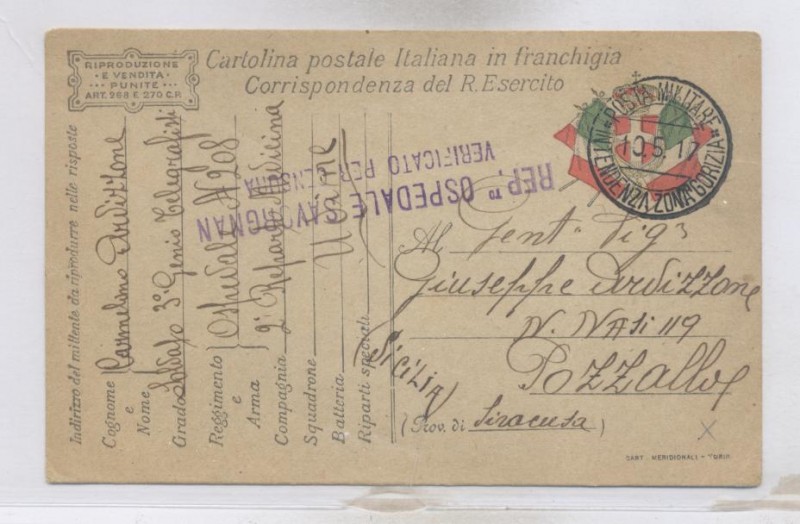 RIPRODUZIONE
E VENDITA
PUNITE
ART. 268 E 270 C.P.
Cartolina postale Italiana in franchigia
Corrispondenza del R. Esercito
POSTA MILITARE
INTENDENZA ZONA GORIZIA
10.5.17
REP.TO OSPEDALE CAV
VERIFICATO PER CENSURA
Indirizzo del mittente da riprodurre nelle risposte
Cognome e Nome Carmelino Ardizzone
Grado Soldato 3º Genio Telegrafisti
Reggimento e Arma Ospedale N 208
Compagnia 2º Reparto Medicina
Squadrone Udine
Batteria
Riparti speciali
Al Gent Sigr
Giuseppe Ardizzone
V. Nasi 119
Pozzallo
(Prov. di Siracusa)
SICILIA
CART. MERIDIONALI -
X